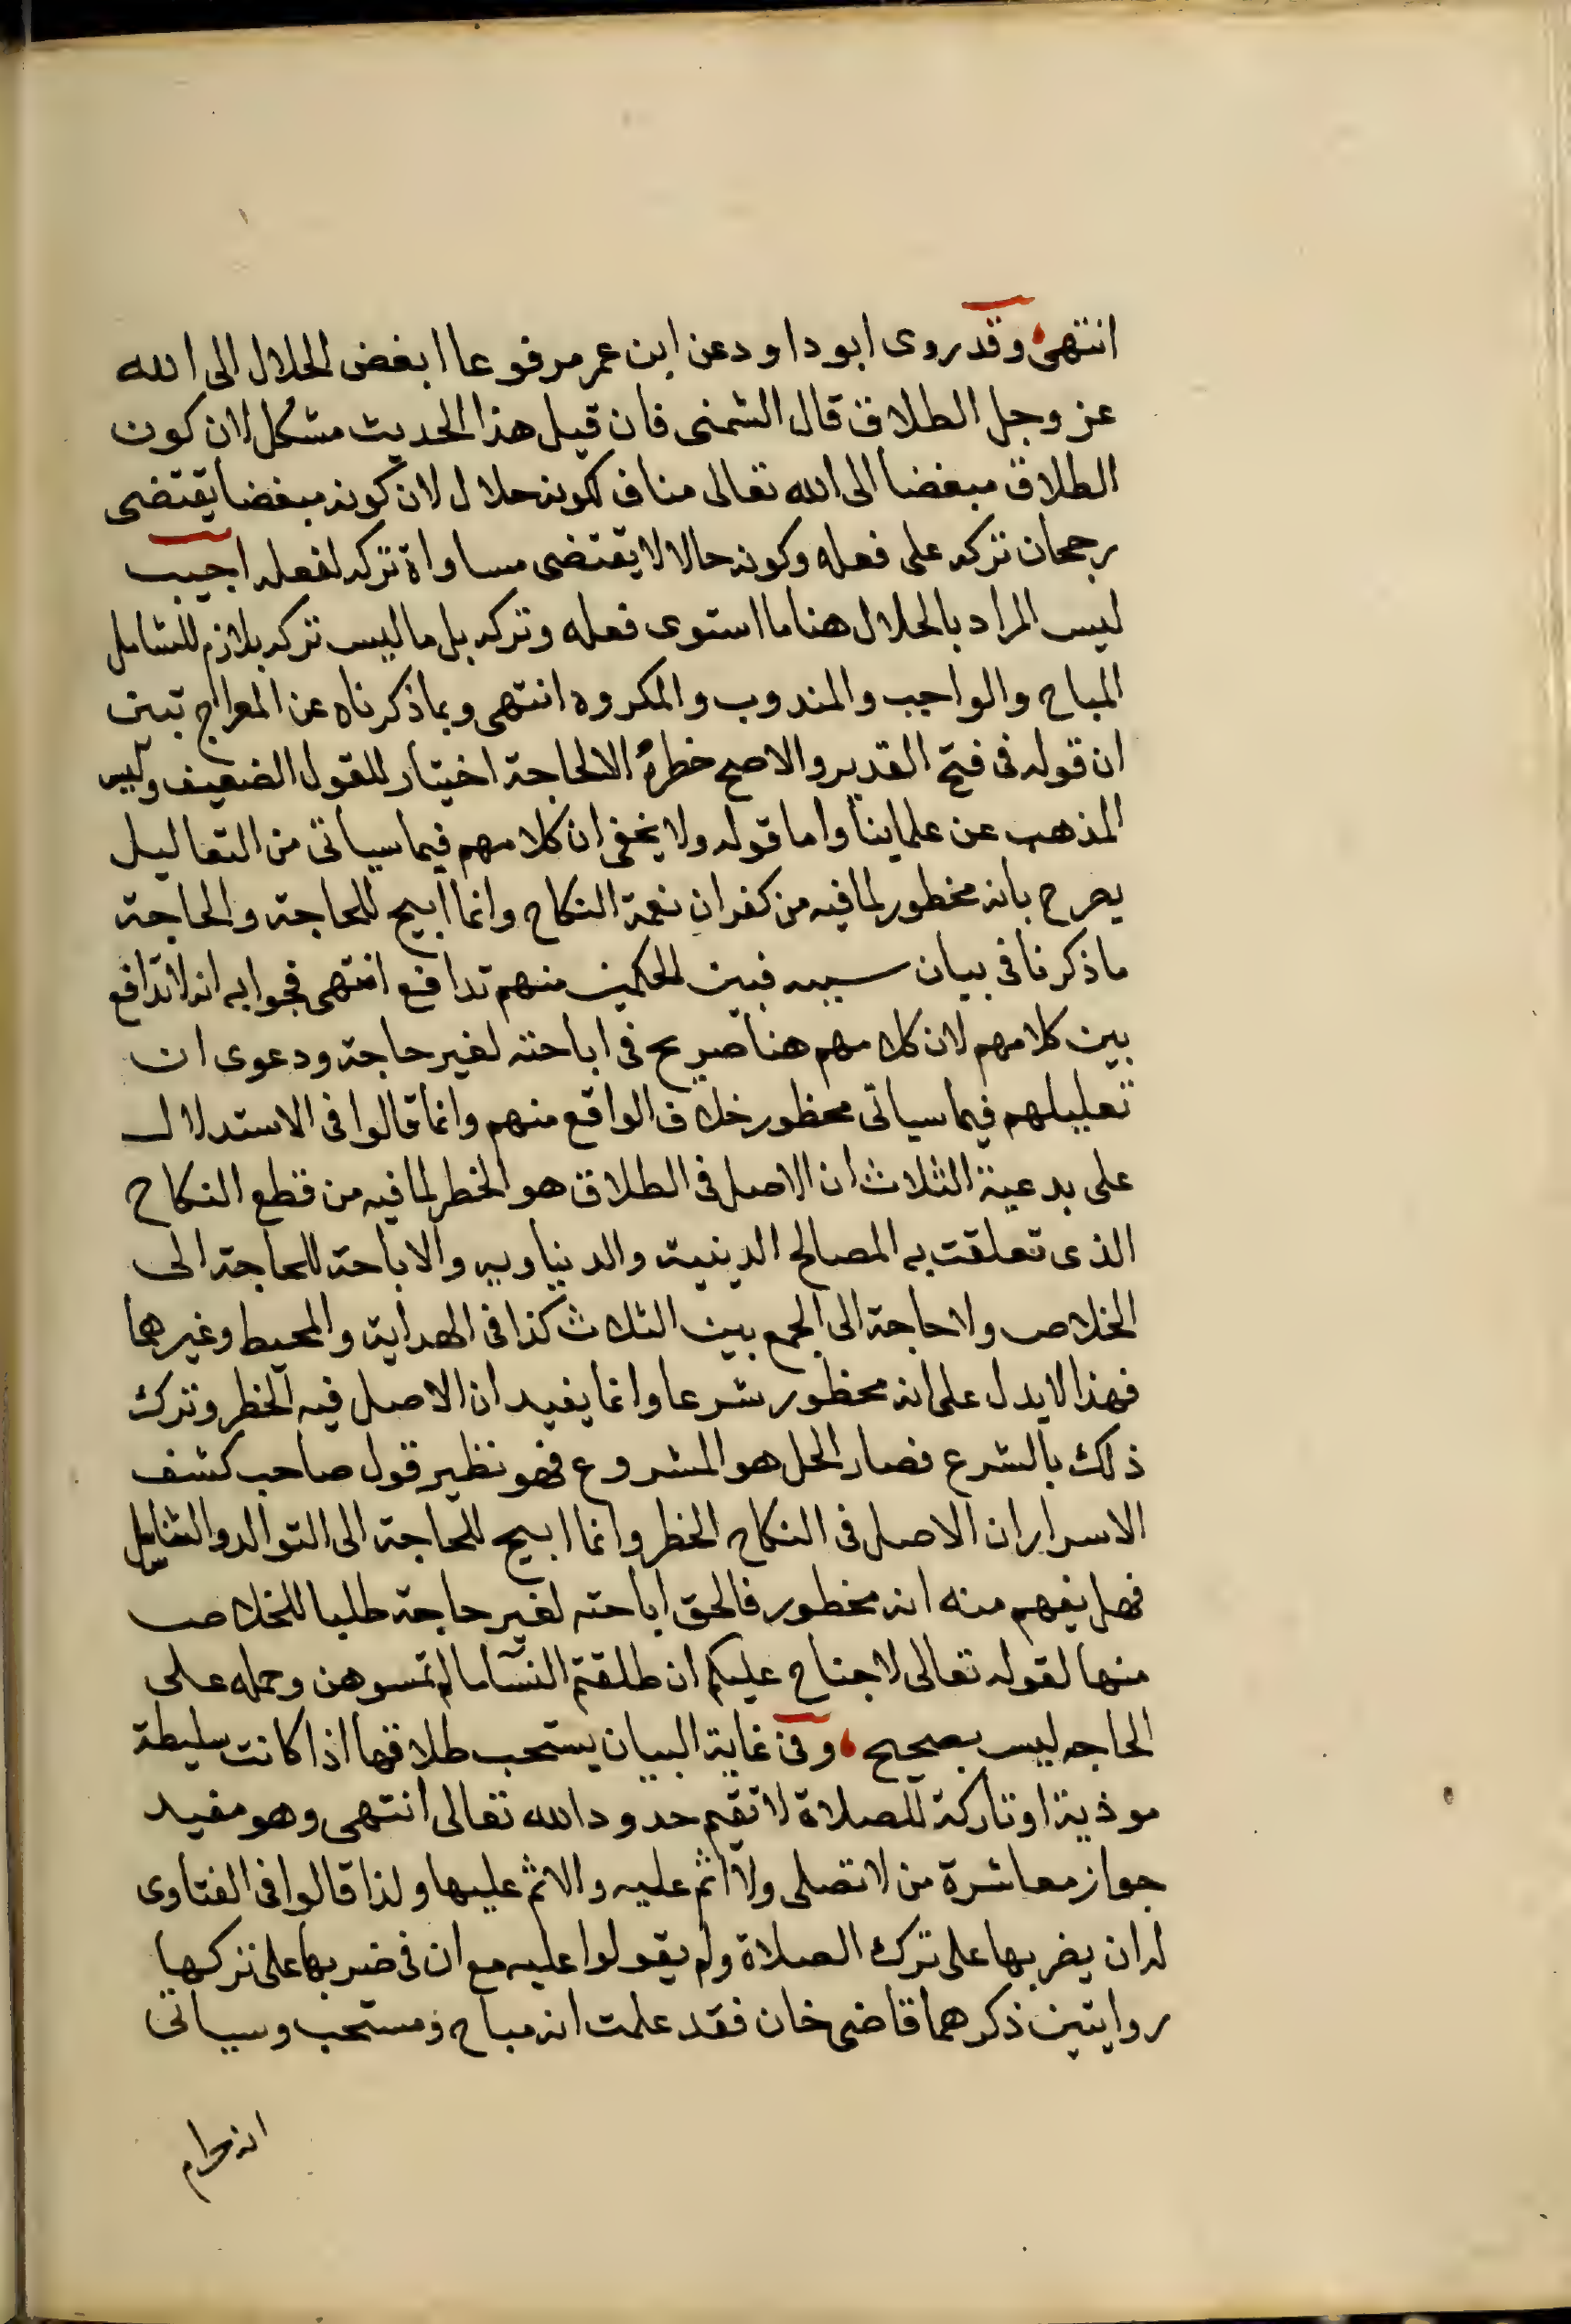 انتهى وقد روى ابو داود عن ابن عمر مرفوعا ابغض الحلال الى الله
عز وجل الطلاق قال الشمنى فان قيل هذا الحديث مشكل لان كون
الطلاق مبغضا الى الله تعالى مناف لكونه حلال لان كونه مبغضا يقتضى
رجحان تركه على فعله وكونه حالالا يقتضى مساواة تركه لفعله اجيب
ليس المراد بالحلال هنا ما استوى فعله وتركه بل ما ليس تركه بلازم للشامل
المباح والواجب والمندوب والمكروه انتهى وبما ذكرناه عن المعراج تبين
ان قوله فى فتح القدير والاصح خطره الا لحاجة اختيار للقول الضعيف وليس
المذهب عن علماينا واما قوله ولا يخفى ان كلامهم فيما سياتى من التعاليل
يصرح بانه محظور لما فيه من كفران نعمة النكاح وانما ابيح للحاجة والحاجة
ما ذكرنا فى بيان سببه فبين الحكمين منهم تدافع انتهى فجوابه انه لا تدافع
بين كلامهم لان كلامهم هنا صريح فى اباحته لغير حاجة ودعوى ان
تعليلهم فيما سياتى محظور خلاف الواقع منهم وانما قالوا فى الاستدلال
على بدعية الثلاث ان الاصل فى الطلاق هو الخطر لما فيه من قطع النكاح
الذى تعلقت به المصالح الدينية والدنياويه والاباحة للحاجة الى
الخلاص ولا حاجة الى الجمع بين الثلاث كذا فى الهداية والمحيط وغيرهما
فهذا لا يدل على انه محظور شرعا وانما يفيد ان الاصل فيه الخطر وترك
ذلك بالشرع فصار الحل هو المشروع فهو نظير قول صاحب كشف
الاسرار ان الاصل فى النكاح الخطر وانما ابيح للحاجة الى التوالد والتناسل
فهل يفهم منه انه محظور فالحق اباحته لغير حاجة طلبا للخلاص
منها لقوله تعالى لا جناح عليكم ان طلقتم النسآ ما لم تمسوهن وحمله على
الحاجه ليس بصحيح وفى غاية البيان يستحب طلاقها اذا كانت سليطة
موذية او تاركة للصلاة لا تقيم حدود الله تعالى انتهى وهو مفيد
جواز معاشرة من لا تصلى ولا اثم عليه والاثم عليها ولذا قالوا فى الفتاوى
له ان يضربها على ترك الصلاة ولم يقولوا عليه مع ان فى ضربها على تركها
روايتين ذكرهما قاضى خان فقد علمت انه مباح ومستحب وسياتى
انه حرام